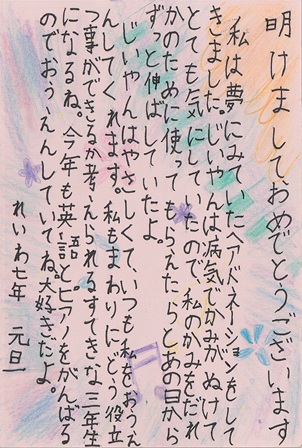 明けましておめでとうございます
私は夢にみていたヘアドネーションをして
きました。じいやんは病気でかみがぬけて
とても気にしていたので、私のかみをだれ
かのために使ってもらえたらとあの日から
ずっと伸ばしていたよ。
じいやんはやさしくて、いつも私をおうえ
んしてくれます。私もまわりにどう役立
つ事ができるか考えられるすてきな三年生
になるね。今年も英語とピアノをがんばる
のでおうえんしていてね。大好きだよ。
れいわ七年 元旦